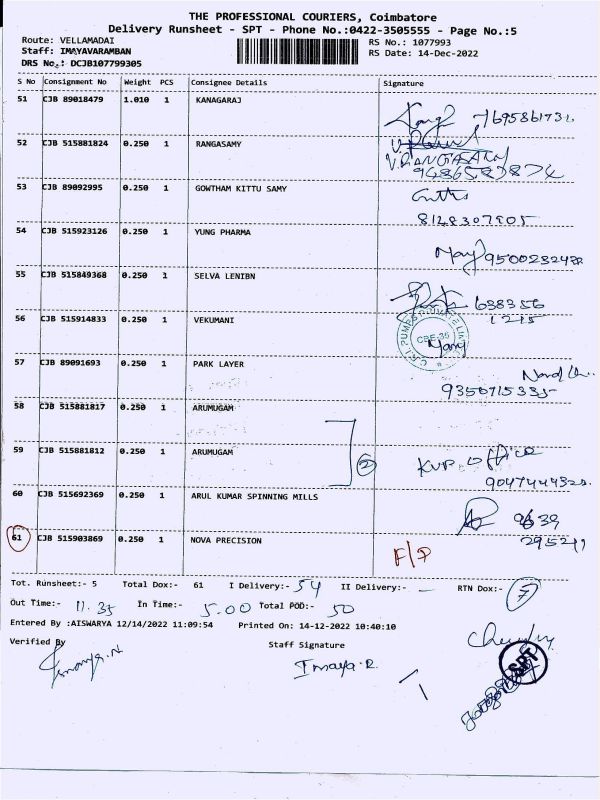 THE PROFESSIONAL COURIERS, Coimbatore
Delivery Runsheet - SPT - Phone No.:0422-3505555 - Page No.:5
Route: VELLAMADAI RS No.: 1077993
Staff: IMAYAVARAMBAN RS Date: 14-Dec-2022
DRS No.: DCJB107799305
S No Consignment No Weight PCS Consignee Details Signature
51 CJB 89018479 1.010 1 KANAGARAJ
52 CJB 515881824 0.250 1 RANGASAMY
V.RANGASAMY
53 CJB 89092995 0.250 1 GOWTHAM KITTU SAMY
54 CJB 515923126 0.250 1 YUNG PHARMA
Mary
55 CJB 515849368 0.250 1 SELVA LENIBN
638356
1215
56 CJB 515914833 0.250 1 VEKUMANI
C.R.I. PUMPS PRIVATE LIMITED
CBE-35
Mary
57 CJB 89091693 0.250 1 PARK LAYER
9350715335
58 CJB 515881817 0.250 1 ARUMUGAM
59 CJB 515881812 0.250 1 ARUMUGAM
2 KVP. office
60 CJB 515692369 0.250 1 ARUL KUMAR SPINNING MILLS
9639
295211
61 CJB 515903869 0.250 1 NOVA PRECISION
F/P
Tot. Runsheet:- 5 Total Dox:- 61 I Delivery:- 54 II Delivery:- — RTN Dox:- 7
Out Time:- 11.35 In Time:- 5.00 Total POD:- 50
Entered By :AISWARYA 12/14/2022 11:09:54 Printed On: 14-12-2022 10:40:10
Verified By Staff Signature
Imaya.R
SPT